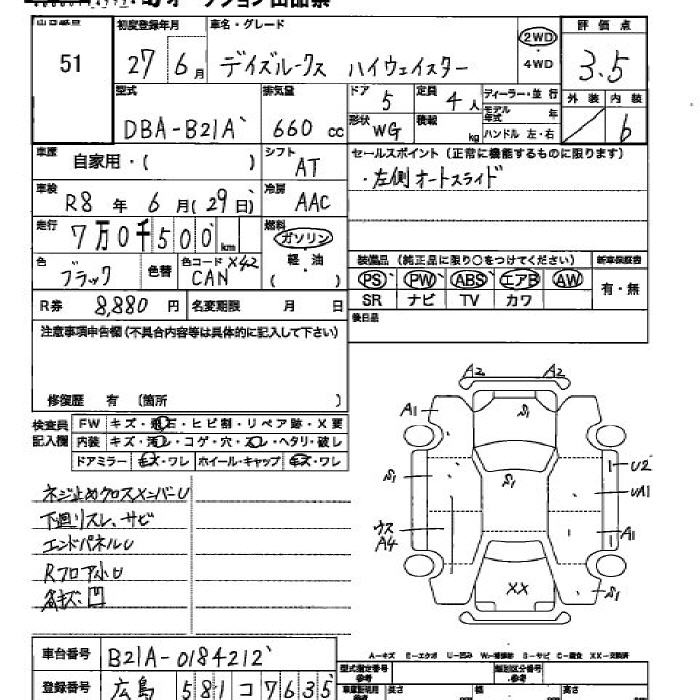 51
初度登録年月
27年 6月
車名・グレード
デイズルークス ハイウェイスター
2WD
・4WD
評価点
3.5
型式
DBA-B21A
排気量
660 cc
ドア
5
定員
4人
ディーラー・並行
モデル年式 年
ハンドル 左・右
形状
WG
積載
kg
外装
内装
6
車歴
自家用・( )
シフト
AT
セールスポイント(正常に機能するものに限ります)
・左側オートスライド
車検
R8年 6月(29日)
冷房
AAC
走行
7万0千500km
燃料
ガソリン
軽・油
( )
色
ブラック
色替
色コード X42
CAN
装備品(純正品に限り○をつけてください)
新車保証書
PS PW ABS エアB AW
SR ナビ TV カワ
有・無
R券
8,880円
名変期限 月 日
後日品
注意事項申告欄(不具合内容等は具体的に記入して下さい)
修復歴 有 (箇所 )
検査員記入欄
FW キズ・飛石・ヒビ割・リペア跡・X要
内装 キズ・汚レ・コゲ・穴・スレ・ヘタリ・破レ
ドアミラー キズ・ワレ ホイール・キャップ キズ・ワレ
ネジ止めクロスメンバーU
下廻リスレ、サビ
エンドパネルU
Rフロア小U
各キズ、凹
A2 A2
A1
S1
S1
S1
U2
UA1
ウス
A4
A1
XX
S1
A-キズ E-エクボ U-凹み W-補修跡 S-サビ C-腐食 XX-交換済
車台番号
B21A-0184212
登録番号
広島 581 コ 7635
型式指定番号
参考
類別区分番号
参考
長さ 幅 高さ